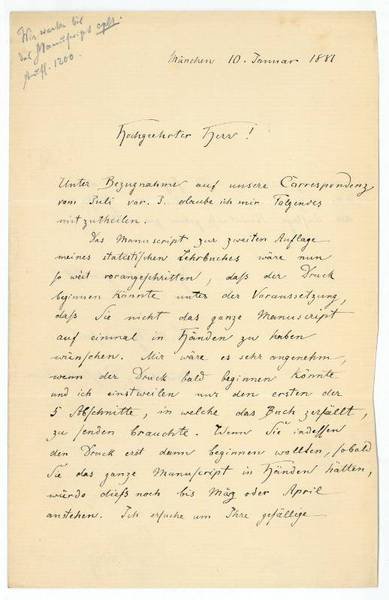 Wir warten bis
das Manuscript cplt.
Aufl. 1200.
München 10. Januar 1881
Hochgeehrter Herr!
Unter Bezugnahme auf unsere Correspondenz
vom Juli vor. J. erlaube ich mir Folgendes
mitzutheilen.
Das Manuscript zur zweiten Auflage
meines statistischen Lehrbuches wäre nun
so weit vorangeschritten, daß der Druck
beginnen könnte unter der Voraussetzung,
daß Sie nicht das ganze Manuscript
auf einmal in Händen zu haben
wünschen. Mir wäre es sehr angenehm,
wenn der Druck bald beginnen könnte
und ich einstweilen nur den ersten der
5 Abschnitte, in welche das Buch zerfällt,
zu senden brauchte. Wenn Sie indessen
den Druck erst dann beginnen wollten, sobald
Sie das ganze Manuscript in Händen hätten,
würde dieß noch bis März oder April
anstehen. Ich ersuche um Ihre gefällige